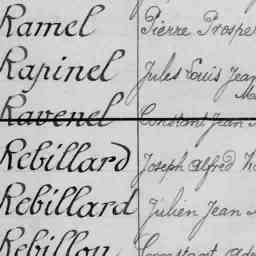 Ramel Pierre Prosper
Rapinel Jules Louis Jean
Ravenel Constant Jean
Rebillard Joseph Alfred
Rebillard Julien Jean
Rebillon Constant